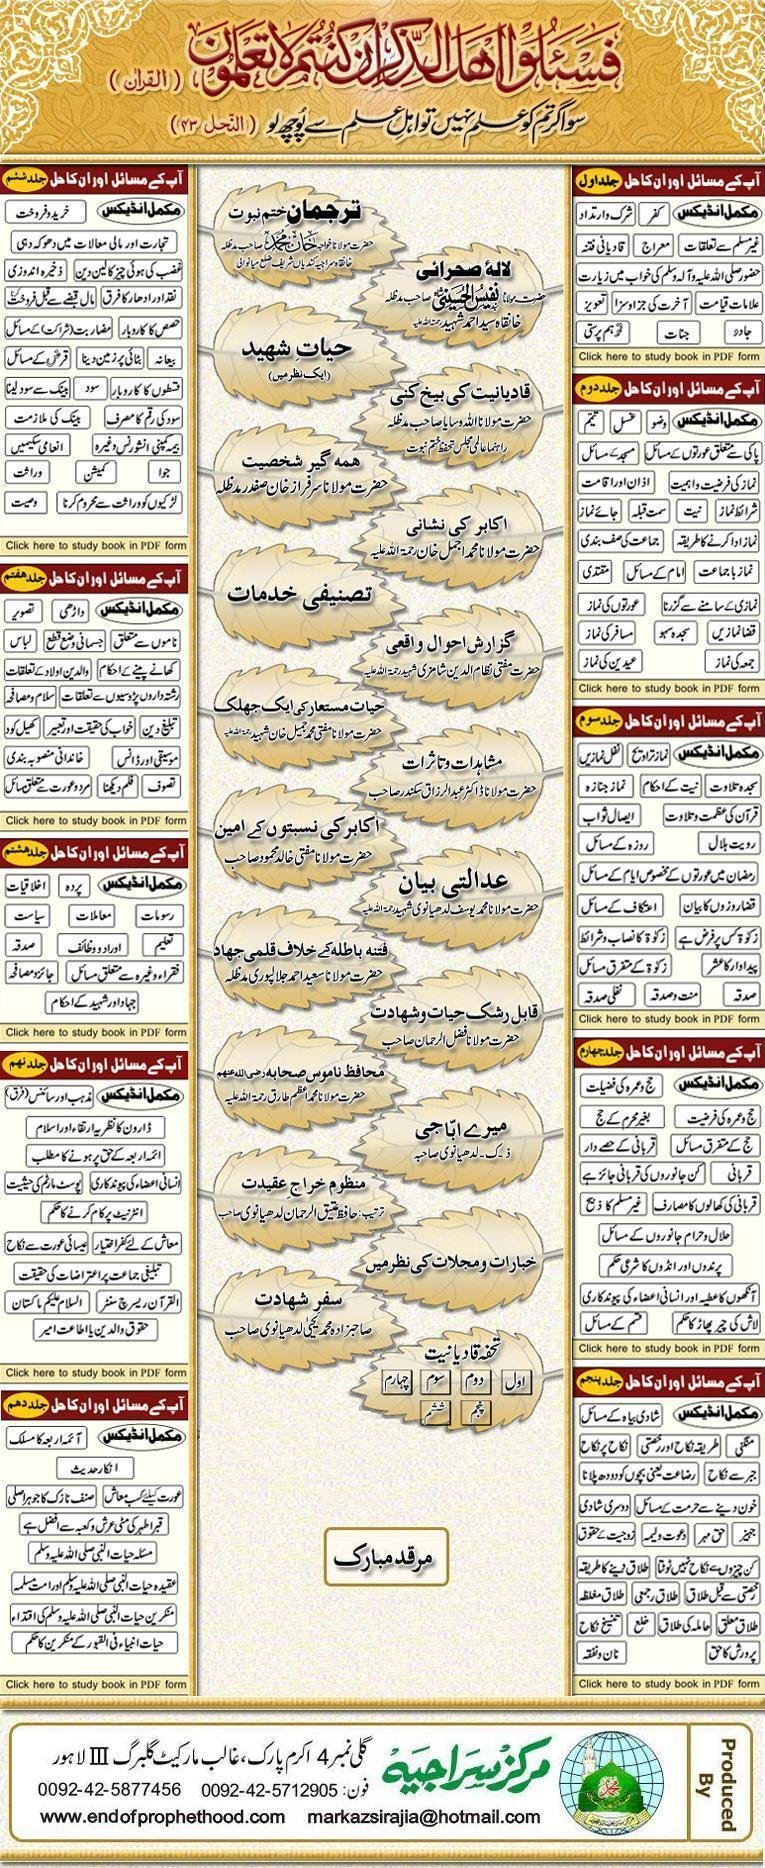 فَسۡـَٔلُوۡۤا اَهۡلَ الذِّكۡرِ اِنۡ كُنۡتُمۡ لَا تَعۡلَمُوۡنَ (القرآن)
سو اگر تم کو علم نہیں تو اہلِ علم سے پُوچھ لو (النّحل ۴۳)
آپ کے مسائل اور ان کا حل جلد اول
مکمل انڈیکس کفر شرک وارتداد
غیر مسلم سے تعلقات معراج قادیانی فتنہ
حضور صلی اللہ علیہ و آلہ وسلم کی خواب میں زیارت
علامات قیامت آخرت کی جزا وسزا تعویز
جادو جنات توہم پرستی
Click here to study book in PDF form
آپ کے مسائل اور ان کا حل جلد دوم
مکمل انڈیکس وضو غسل تیمم
پاکی سے متعلق عورتوں کے مسائل مسجد کے مسائل
نماز کی فرضیت واہمیت اذان اور اقامت
شرائط نماز نیت سمت قبلہ جائے نماز
نماز ادا کرنے کا طریقہ جماعت کی صف بندی
نماز با جماعت امام کے مسائل مقتدی
نمازی کے سامنے سے گزرنا عورتوں کی نماز
قضا نمازیں سجدہ سہو مسافر کی نماز
جمعہ کی نماز عیدین کی نماز
Click here to study book in PDF form
آپ کے مسائل اور ان کا حل جلد سوم
مکمل انڈیکس نماز تراویح نفل نمازیں
سجدہ تلاوت میت کے احکام نماز جنازہ
قرآن کی عظمت و تلاوت ایصال ثواب
رویت ہلال روزہ کے مسائل
رمضان میں عورتوں کے مخصوص ایام کے مسائل
قضا روزوں کا بیان اعتکاف کے مسائل
زکوٰۃ کس پر فرض ہے زکوٰۃ کا نصاب و شرائط
پیداوار کا عشر زکوٰۃ کے متفرق مسائل
صدقہ منت و صدقہ نفلی صدقہ
Click here to study book in PDF form
آپ کے مسائل اور ان کا حل جلد چہارم
مکمل انڈیکس حج وعمرہ کی فضیلت
حج وعمرہ کی فرضیت بغیر محرم کے حج
حج کے متفرق مسائل قربانی کے حصے دار
قربانی کن جانوروں کی قربانی جائز ہے
قربانی کی کھالوں کا مصارف غیر مسلم کا ذبیح
حلال و حرام جانوروں کے مسائل
پرندوں اور انڈوں کا شرعی حکم
آنکھوں کا عطیہ اور انسانی اعضاء کی پیوندکاری
لاش کی چیر پھاڑ کا حکم قسم کے مسائل
Click here to study book in PDF form
آپ کے مسائل اور ان کا حل جلد پنجم
مکمل انڈیکس شادی بیاہ کے مسائل
منگنی طریقہ نکاح اور رخصتی نکاح پر نکاح
جبر سے نکاح رضاعت یعنی بچوں کو دودھ پلانا
خون دینے سے حرمت کے مسائل دوسری شادی
جہیز حق مہر دعوت ولیمہ زوجیت کے حقوق
کن چیزوں سے نکاح نہیں ٹوٹتا طلاق دینے کا طریقہ
رخصتی سے قبل طلاق طلاق رجعی طلاق مغلظہ
طلاق معلق حاملہ کی طلاق خلع تنسیخ نکاح
پرورش کا حق نان و نفقہ
Click here to study book in PDF form
ترجمان ختم نبوت
حضرت مولانا خواجہ خان محمد صاحب مدظلہ
خانقاہ سراجیہ کندیاں شریف ضلع میانوالی
لالۂ صحرائی
حضرت مولانا نفیس الحسینی شاہ صاحب مدظلہ
خانقاہ سید احمد شہید رحمۃ اللہ علیہ
حیات شهید
(ایک نظر میں)
قادیانیت کی بیخ کنی
حضرت مولانا اللہ وسایا صاحب مدظلہ
راہنما عالمی مجلس تحفظ ختم نبوت
همه گیر شخصیت
حضرت مولانا سرفراز خان صفدر مدظلہ
اکابر کی نشانی
حضرت مولانا محمد اجمل خان رحمۃ اللہ علیہ
تصنیفی خدمات
گزارش احوال واقعی
حضرت مفتی نظام الدین شامزی شہید رحمۃ اللہ علیہ
حیات مستعار کی ایک جھلک
حضرت مولانا مفتی محمد جمیل خان شہید رحمۃ اللہ علیہ
مشاہدات و تاثرات
حضرت مولانا ڈاکٹر عبد الرزاق سکندر صاحب
اکابر کی نسبتوں کے امین
حضرت مولانا مفتی خالد محمود صاحب
عدالتی بیان
حضرت مولانا محمد یوسف لدھیانوی شہید رحمۃ اللہ علیہ
فتنہ باطلہ کے خلاف قلمی جهاد
حضرت مولانا سعید احمد جلالپوری مدظلہ
قابل رشک حیات و شهادت
حضرت مولانا فضل الرحمان صاحب
محافظ ناموس صحابہ رضی اللہ عنہم
حضرت مولانا محمد اعظم طارق رحمۃ اللہ علیہ
میرے ابّا جی
ذ۔ک۔لدھیانوی صاحبہ
منظوم خراج عقیدت
ترتیب: حافظ عتیق الرحمان لدھیانوی صاحب
خبارات و مجلات کی نظر میں
سفر شهادت
صاحبزادہ محمد یحییٰ لدھیانوی صاحب
تحفہ قادیانیت
اول دوم سوم چہارم
پنجم ششم
مرقد مبارک
آپ کے مسائل اور ان کا حل جلد ششم
مکمل انڈیکس خرید و فروخت
تجارت اور مالی معالات میں دھوکہ دہی
غصب کی ہوئی چیز کا لین دین ذخیرہ اندوزی
نقد اور ادھار کا فرق مال قبضے سے قبل فروخت کرنا
حصص کا کاروبار مضاربت (شراکت) کے مسائل
بیعانہ بٹائی پر زمین دینا قرض کے مسائل
قسطوں کا کاروبار سود بینک سے سود لینا
سود کی رقم کا مصرف بینک کی ملازمت
بیمہ کمپنی انشورنس وغیرہ انعامی سکیمیں
جوا کمیشن وراثت
لڑکیوں کو وراثت سے محروم کرنا وصیت
Click here to study book in PDF form
آپ کے مسائل اور ان کا حل جلد ہفتم
مکمل انڈیکس داڑھی تصویر
ناموں سے متعلق جسمانی وضع قطع لباس
کھانے پینے کے احکام والدین اولاد کے تعلقات
رشتہ داروں پڑوسیوں سے تعلقات سلام و مصافحہ
تبلیغ دین خواب کی حقیقت اور تعبیر کھیل کود
موسیقی اور ڈانس خاندانی منصوبہ بندی
تصوف فلم دیکھنا مرد و عورت سے متعلق مسائل
Click here to study book in PDF form
آپ کے مسائل اور ان کا حل جلد ہشتم
مکمل انڈیکس پردہ اخلاقیات
رسومات معاملات سیاست
تعلیم اوراد و وظائف صدقہ
فقراء وغیرہ سے متعلق مسائل جائز و مصافحہ
جہاد اور شہید کے احکام
Click here to study book in PDF form
آپ کے مسائل اور ان کا حل جلد نہم
مکمل انڈیکس مذہب اور سائنس (فرق)
ڈارون کا نظریہ ارتقاء اور اسلام
ائمہ اربعہ کے حق پر ہونے کا مطلب
انسانی اعضاء کی پیوندکاری پوسٹ مارٹم کی حیثیت
انٹرنیٹ پر کام کرنے کا حکم
معاش کے لئے کفر اختیار عیسائی عورت سے نکاح
تبلیغی جماعت پر اعتراضات کی حقیقت
القرآن ریسرچ سنٹر السلام علیکم پاکستان
حقوق والدین یا اطاعت امیر
Click here to study book in PDF form
آپ کے مسائل اور ان کا حل جلد دہم
مکمل انڈیکس آئمہ اربعہ کا مسلک
انکار حدیث
عورت کیلئے کسب معاش صنف نازک کا جوہر اصلی
قبر اطہر کی مٹی عرش و کعبہ سے افضل ہے
مسئلہ حیات النبی صلی اللہ علیہ وسلم
عقیدہ حیات النبی صلی اللہ علیہ وسلم اور امت مسلمہ
منکرین حیات النبی صلی اللہ علیہ وسلم کی اقتداء
حیات انبیاء فی القبور کے منکرین کا حکم
Click here to study book in PDF form
Produced By
مرکز سراجیہ
گلی نمبر 4 اکرم پارک، غالب مارکیٹ گلبرگ III لاہور
فون: 0092-42-5712905 0092-42-5877456
www.endofprophethood.com markazsirajia@hotmail.com